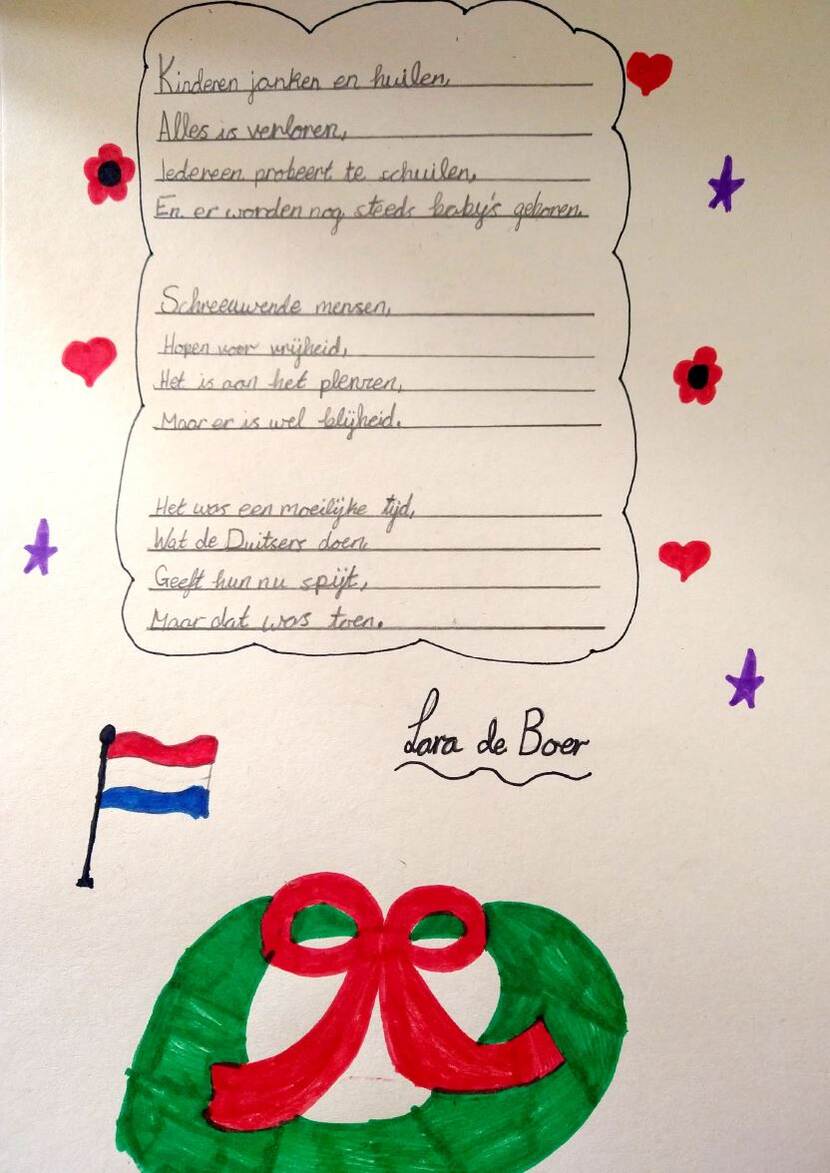 Kinderen janken en huilen,
Alles is verloren,
Iedereen probeert te schuilen,
En er worden nog steeds baby's geboren.
Schreeuwende mensen,
Hopen voor vrijheid,
Het is aan het plenzen,
Maar er is wel blijheid.
Het was een moeilijke tijd,
Wat de Duitsers doen,
Geeft hun nu spijt,
Maar dat was toen.
Lara de Boer